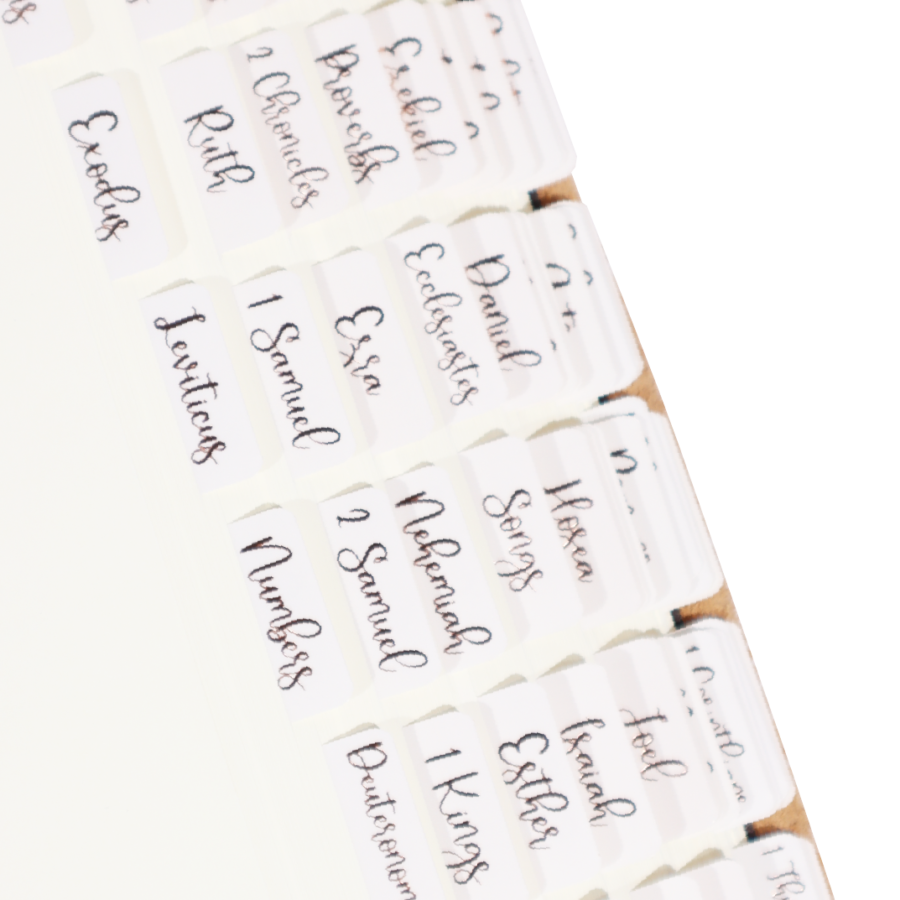 Exodus
Ruth
2 Chronicles
Proverbs
Ezekiel
Leviticus
1 Samuel
Ezra
Ecclesiastes
Daniel
Numbers
2 Samuel
Nehemiah
Songs
Hosea
Deuteronom
1 Kings
Esther
Isaiah
Joel
1 Th